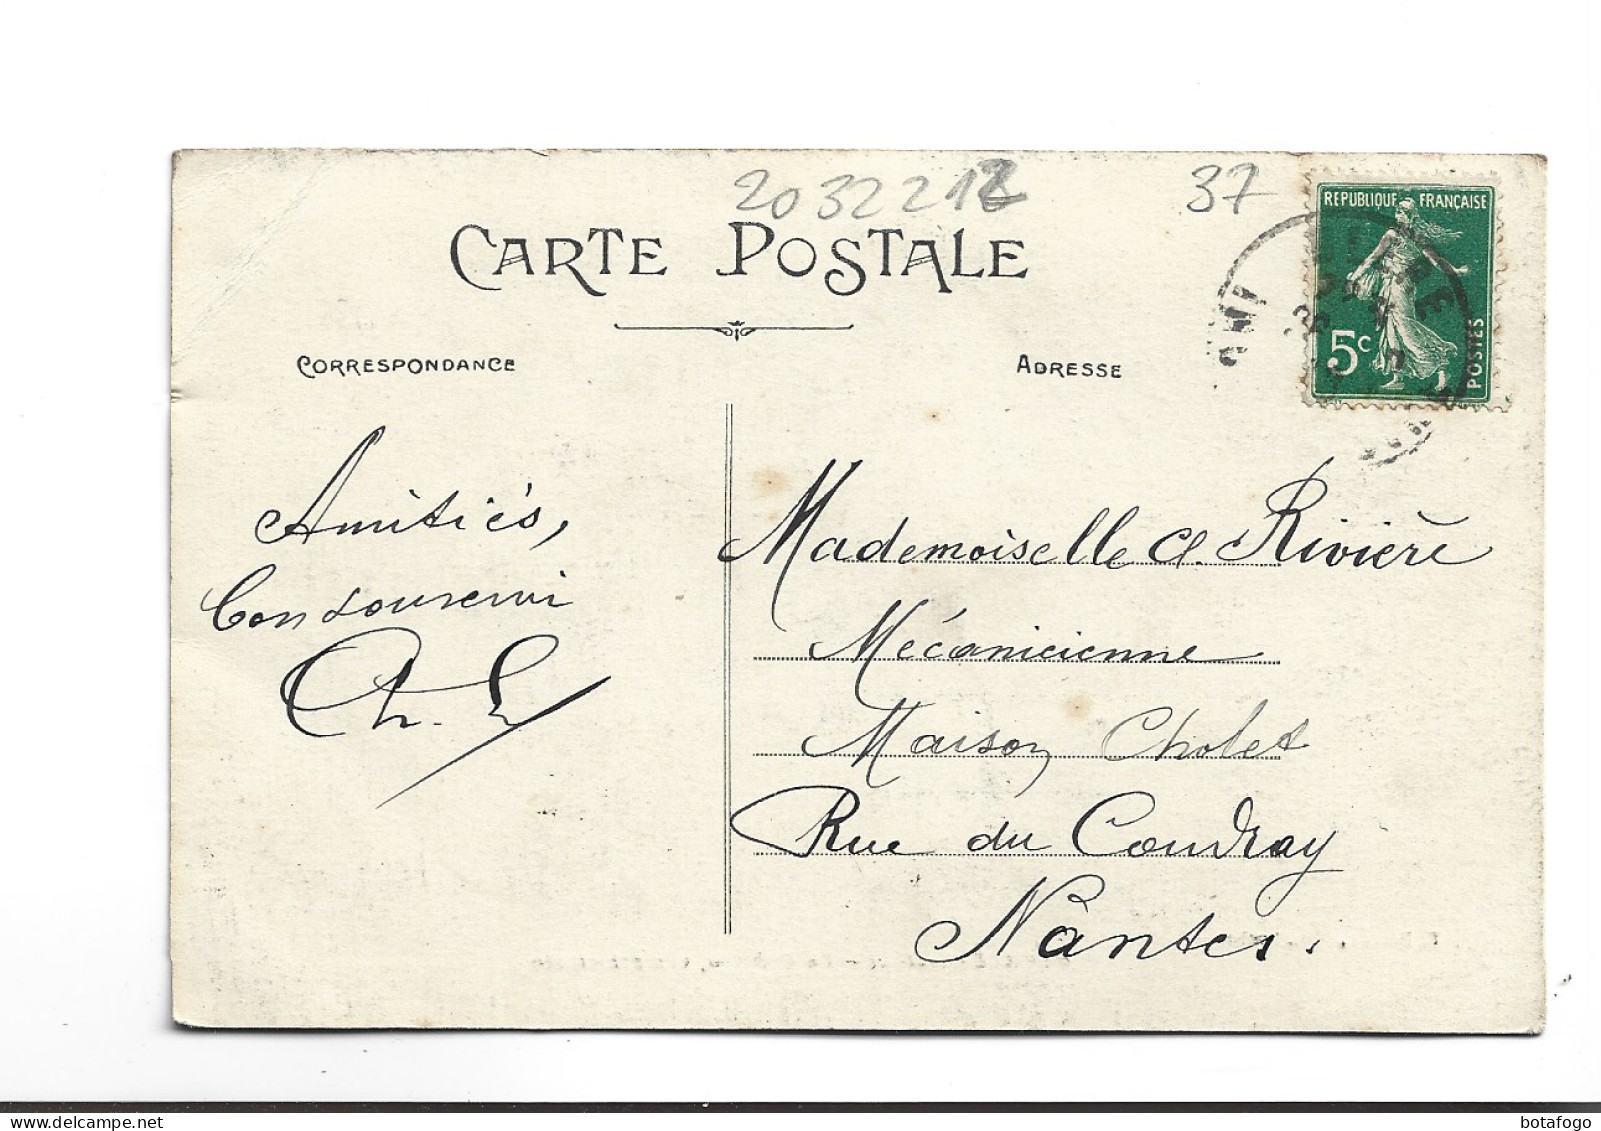 2032212
37
CARTE POSTALE
CORRESPONDANCE
ADRESSE
REPUBLIQUE FRANÇAISE
5c
POSTES
Amitiés,
Bon souvenir
Ch. L
Mademoiselle Cl. Rivière
Mécanicienne
Maison Cholet
Rue du Coudray
Nantes.
botafogo